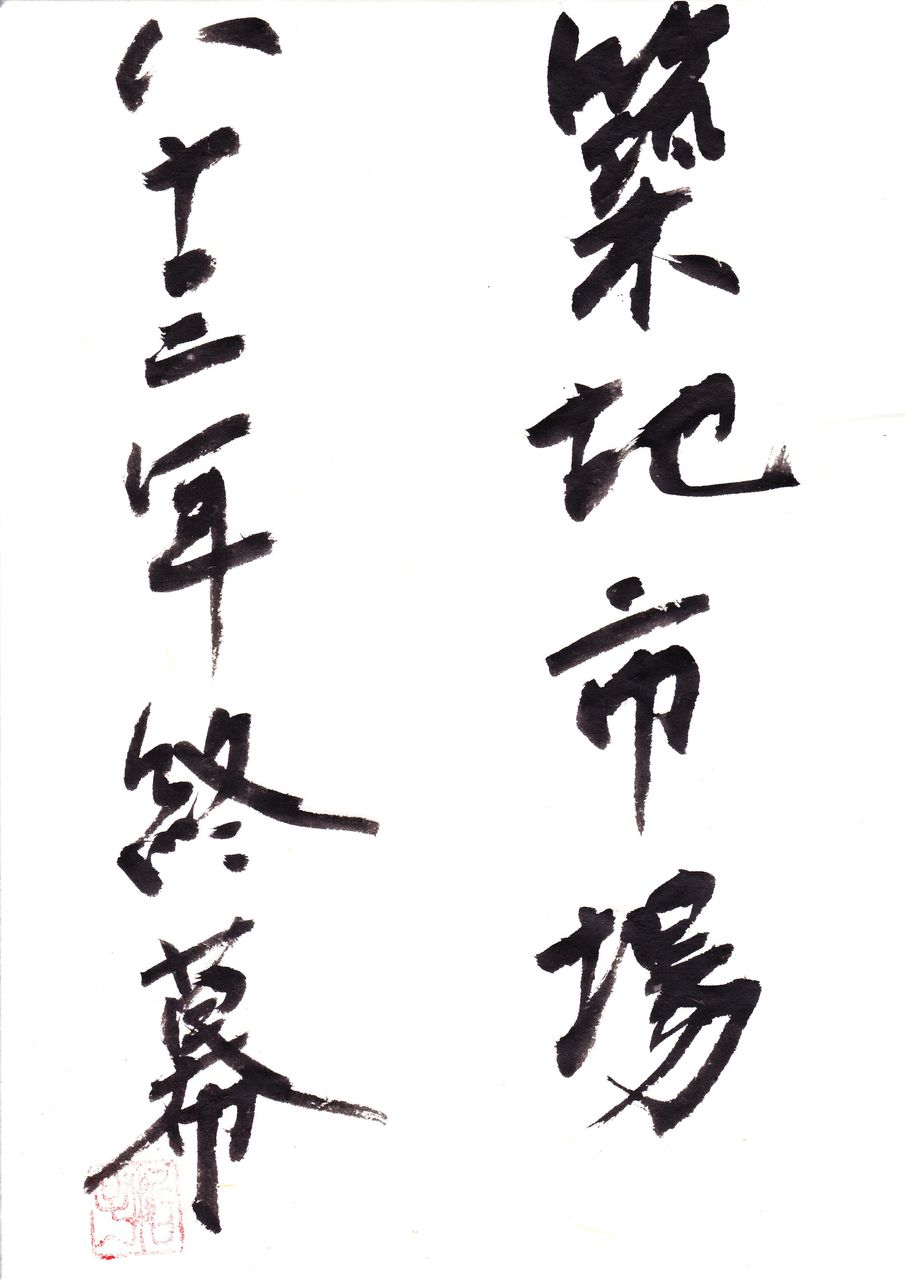 築地市場
八十三年終幕